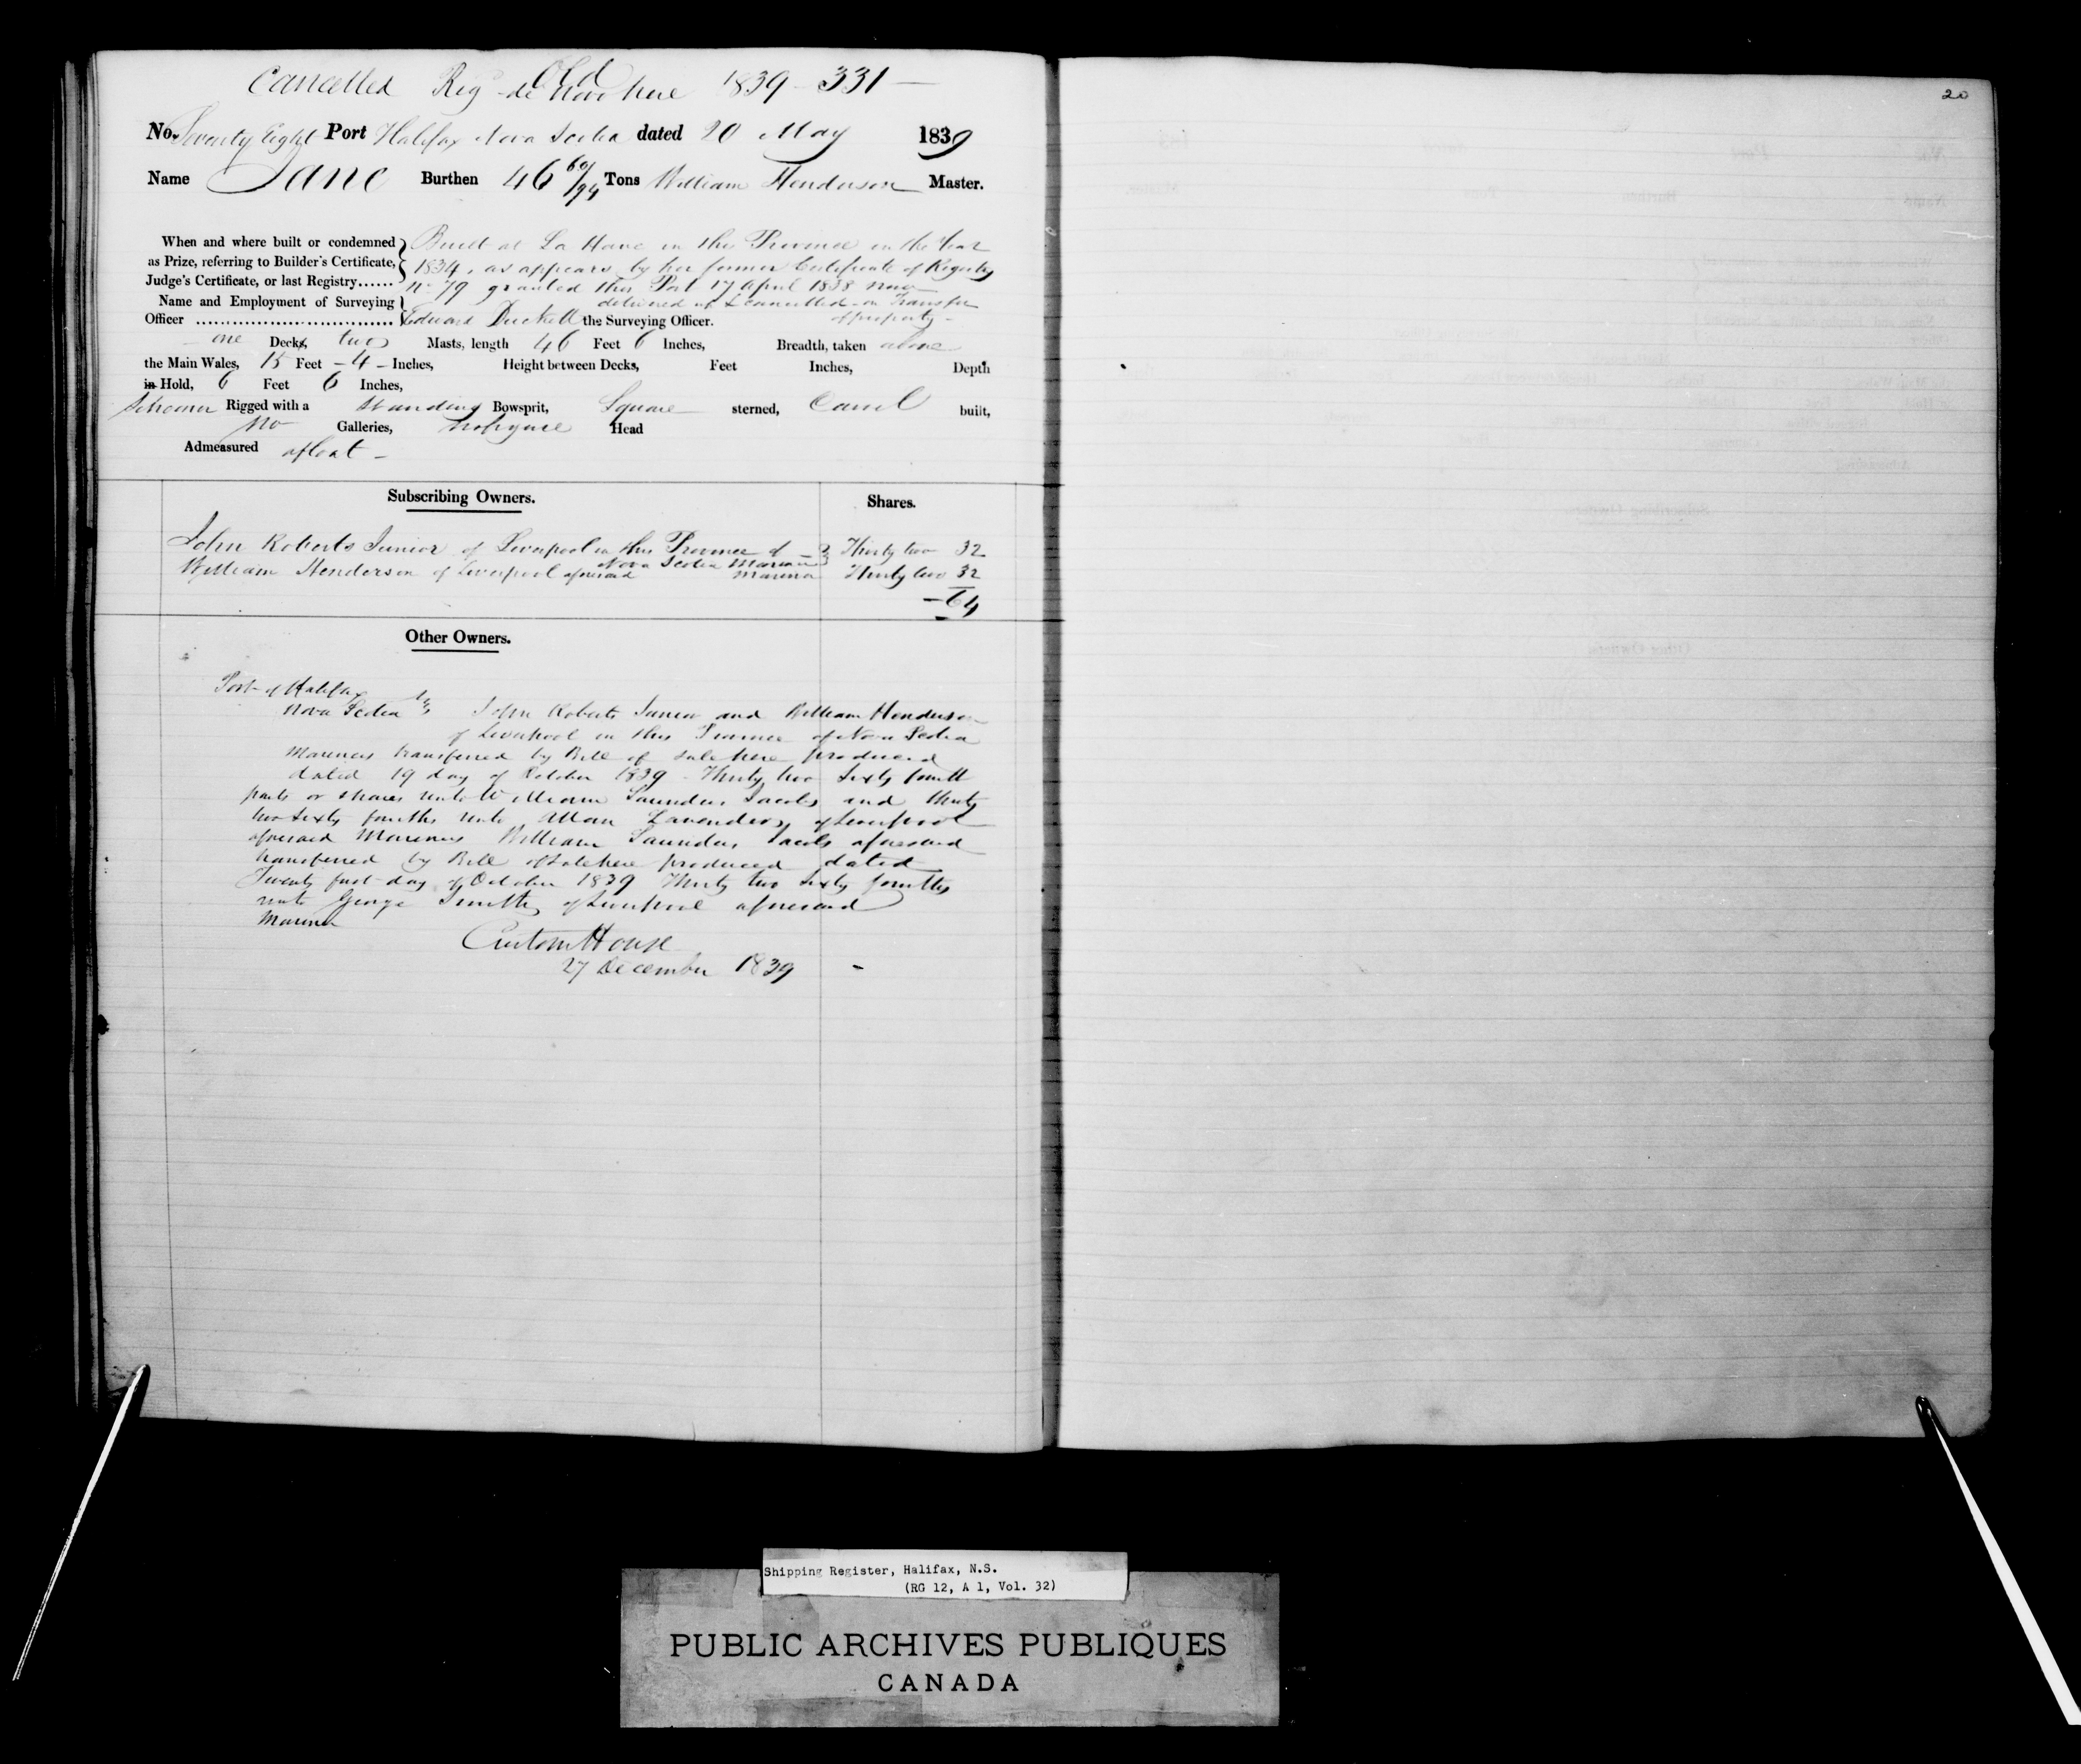 Old
Cancelled Reg de novo here 1839 - 331 -
No. Seventy Eight Port Halifax Nova Scotia dated 20 May 1839
Name Jane Burthen 46 60/94 Tons William Henderson Master.
When and where built or condemned Built at La Have in this Province in the Year
as Prize, referring to Builder's Certificate, 1834, as appears by her former Certificate of Registry
Judge's Certificate, or last Registry...... No 79 granted this Port 17 April 1838 now
Name and Employment of Surveying delivered up & cancelled on Transfer
Officer ................................. Edward Duckett the Surveying Officer. of property -
one Decks, two Masts, length 46 Feet 6 Inches, Breadth, taken above
the Main Wales, 15 Feet - 4 - Inches, Height between Decks, Feet Inches, Depth
in Hold, 6 Feet 6 Inches,
Schooner Rigged with a Standing Bowsprit, Square sterned, Carvel built,
no Galleries, no figure Head
Admeasured afloat -
Subscribing Owners. Shares.
John Roberts Junior of Liverpool in this Province of Thirty two 32
Nova Scotia Mariner
William Henderson of Liverpool aforesaid Mariner Thirty two 32
- 64
Other Owners.
Port of Halifax
Nova Scotia John Roberts Junior and William Henderson
of Liverpool in this Province of Nova Scotia
Mariners transferred by Bill of Sale here produced
dated 19 day of October 1839 - Thirty two Sixty fourth
parts or shares unto William Saunders Jacobs and thirty
two Sixty fourths unto Allan Lavender of Liverpool
aforesaid Mariners William Saunders Jacobs aforesaid
transferred by Bill of Sale here produced dated
Twenty first day of October 1839 Thirty two Sixty fourths
unto George Smith of Liverpool aforesaid
Mariner
Custom House
27 December 1839 -
20
Shipping Register, Halifax, N.S.
(RG 12, A 1, Vol. 32)
PUBLIC ARCHIVES PUBLIQUES
CANADA